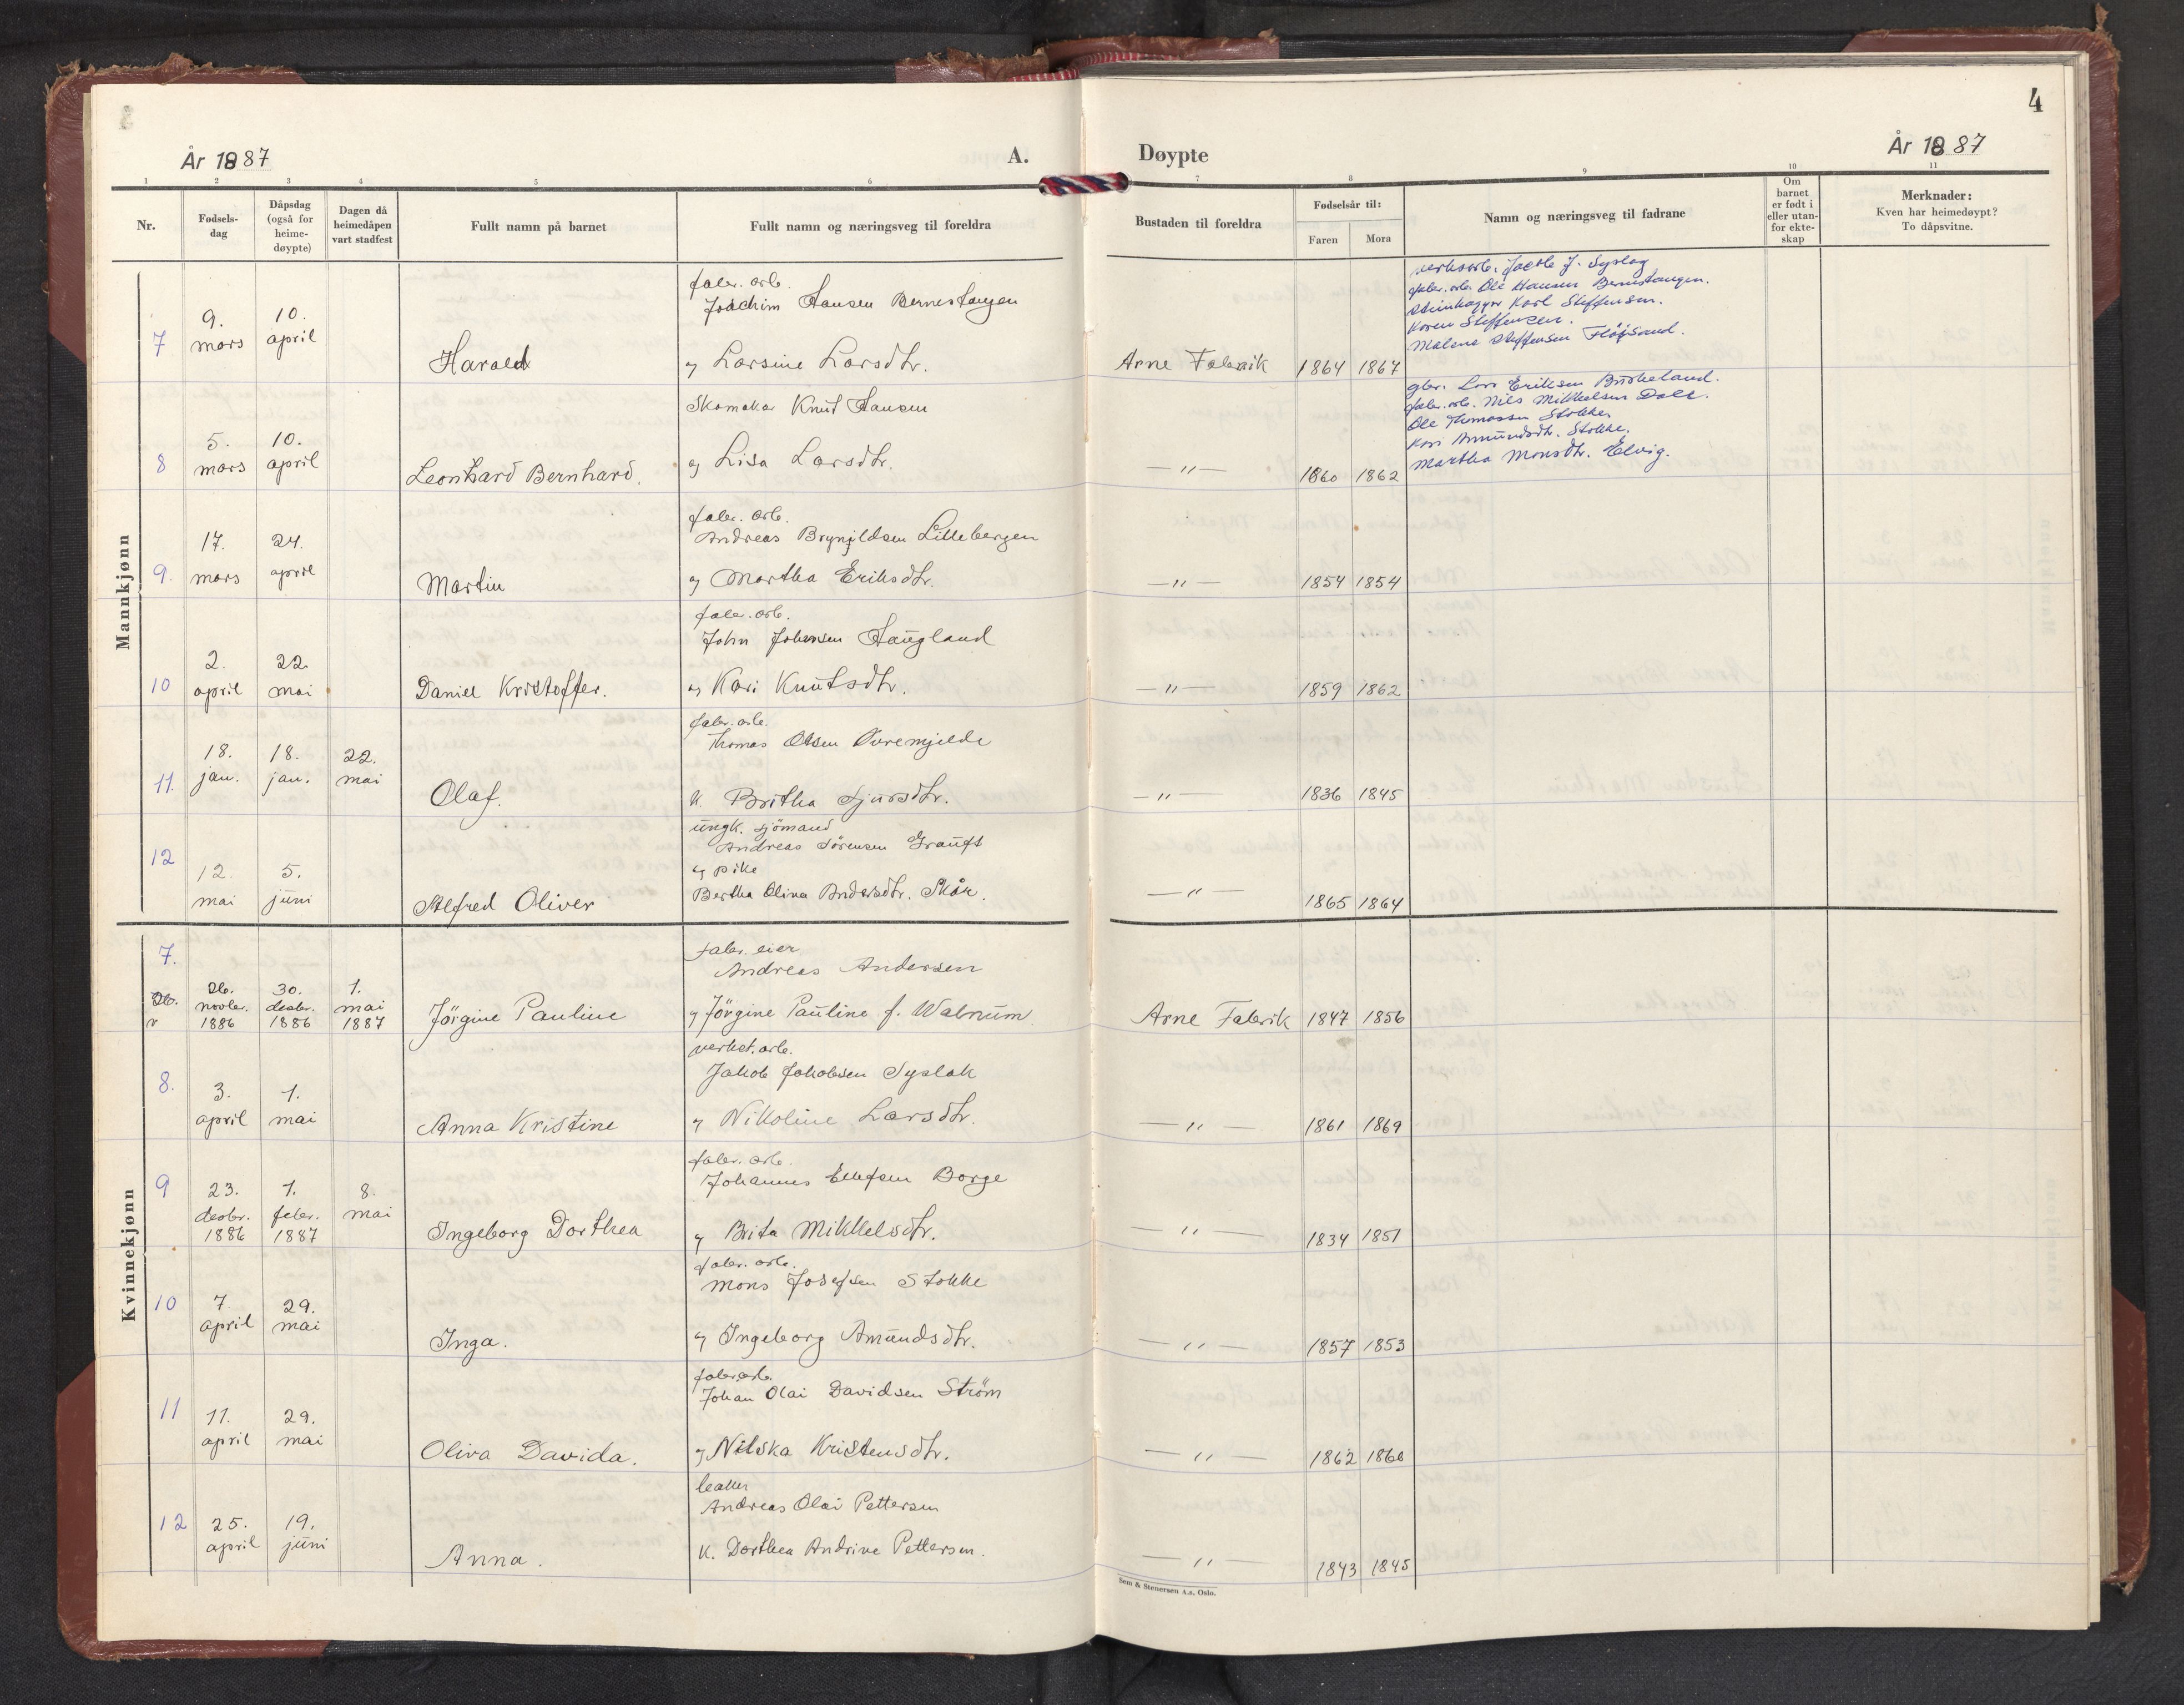 4
År 1887
A.
Døypte
År 1887
1 2 3 4 5 6 7 8 9 10 11
Nr.
Fødsels-
dag
Dåpsdag
(også for
heime-
døypte)
Dagen då
heimedåpen
vart stadfest
Fullt namn på barnet
Fullt namn og næringsveg til foreldra
Bustaden til foreldra
Fødselsår til:
Faren
Mora
Namn og næringsveg til fadrane
Om
barnet
er født i
eller utan-
for ekte-
skap
Merknader:
Kven har heimedøypt?
To dåpsvitne.
Mannkjønn
7
9.
mars
10.
april
Harald
fabr. arb.
Joachim Hansen Bernestangen
og Larsine Larsdtr.
Arne Fabrik
1864 1867
verksarb. Jacob J. Syslag
fabr. arb. Ole Hansen Bernestangen.
Steinhogger Karl Steffensen.
Karen Steffensen.
Malene Steffensen Fløjsand.
8
5.
mars
10.
april
Leonhard Bernhard.
Skomaker Knut Hansen
og Lisa Larsdtr.
— " —
1860 1862
gbr. Lars Eriksen Busheland.
fabr. arb. Nils Mikkelsen Dale.
Ole Thomassen Stokke
Kari Amundsdtr. Stokke.
Martha Monsdtr. Elvig.
9.
17.
mars
24.
april
Martin
fabr. arb.
Andreas Brynjildsen Lillebergen
og Martha Eriksdtr.
— " —
1854 1854
10
2.
april
22.
mai
Daniel Kristoffer.
fabr. arb.
John Johnsen Haugland
og Kari Knutsdtr.
— " —
1859 1862
11.
18.
jan.
18.
jan.
22.
mai
Olaf.
fabr. arb.
Thomas Olsen Øvremjelde
k. Britha Sjursdtr.
— " —
1836 1845
12
12.
mai
5.
juni
Alfred Oliver
ungk. sjömand
Andreas Sörensen
og pike
Bertha Olina Andersdtr. Skår.
— " —
1865 1864
Kvinnekjønn
7.
26.
novbr.
1886
30.
desbr.
1886
1.
mai
1887
Jörgine Pauline
fabr. eier
Andreas Andersen
og Jörgine Pauline f. Walnum
Arne Fabrik
1847 1856
8.
3.
april
1.
mai
Anna Kristine
verkst. arb.
Jakob Jakobsen Syslak
og Nikoline Larsdtr.
— " —
1861 1869
9
23.
desbr.
1886
1.
febr.
1887
8.
mai
Ingeborg Dorthea
fabr. arb.
Johannes Ellefsen Borge
og Brita Mikkelsdtr.
— " —
1834 1851
10
7.
april
29.
mai
Inga.
fabr. arb.
Mons Josefsen Stokke
og Ingeborg Amundsdtr.
— " —
1857 1853
11
11.
april
29.
mai
Oliva Davida.
fabr. arb.
Johan Olai Davidsen Ström
og Nilska Kristensdtr.
— " —
1862
12
25.
april
19.
juni
Anna.
Andreas Olai Pettersen
k. Dorthea Andrine Pettersen.
— " —
1843 1845
Sem & Stenersen A.s. Oslo.